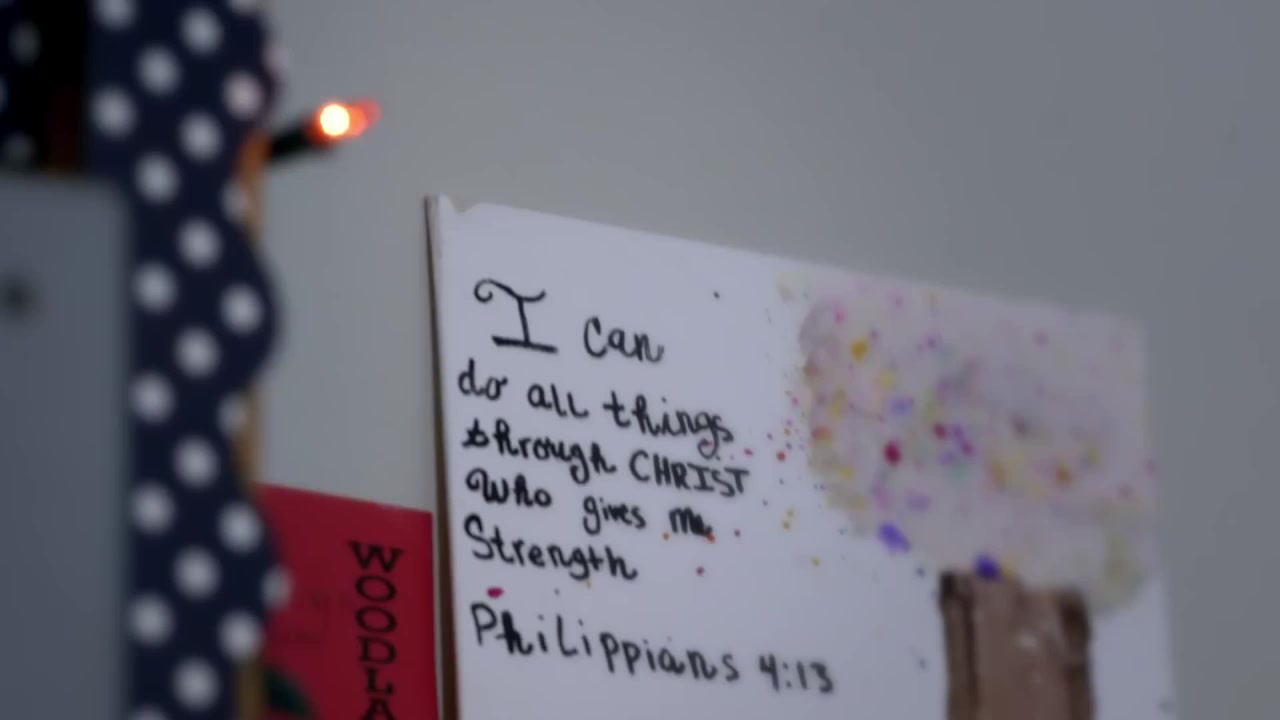 I can
do all things
through CHRIST
Who gives me
Strength
Philippians 4:13
WOODLA